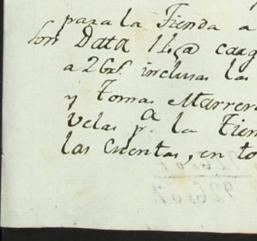 para la Tienda a
son Data 11.@ carg
a 26rs. inclusas las
y Tomas Marrer
Velas pa. la Tien
las Cuentas, en to